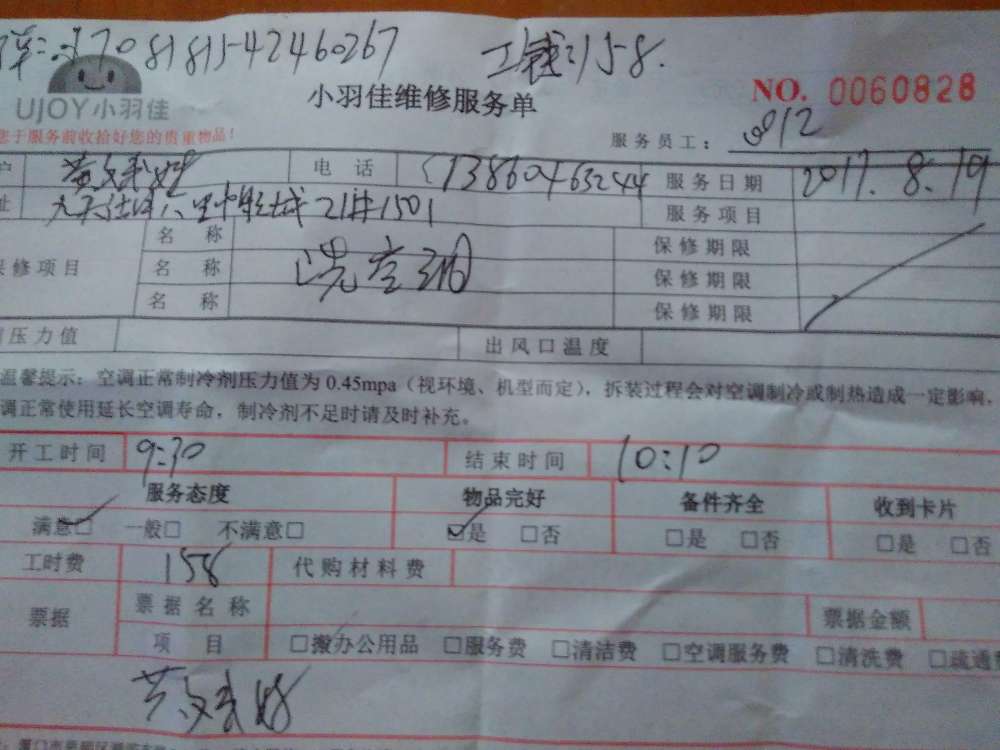 170818115-42460267 工钱:158.
UJOY小羽佳 小羽佳维修服务单 NO. 0060828
您于服务前收拾好您的贵重物品!
服务员工: 9012
户 电 话 13860463244 服务日期 2017.8.19
址 21#1501 服务项目
名 称 保修期限
保修项目 名 称 洗空调 保修期限
名 称 保修期限
压力值 出风口温度
温馨提示:空调正常制冷剂压力值为 0.45mpa(视环境、机型而定),拆装过程会对空调制冷或制热造成一定影响,
调正常使用延长空调寿命,制冷剂不足时请及时补充。
开工时间 9:30 结束时间 10:10
服务态度 物品完好 备件齐全 收到卡片
满意☑ 一般□ 不满意□ ☑是 □否 □是 □否 □是 □否
工时费 158 代购材料费
票据 票据名称 票据金额
项 目 □搬办公用品 □服务费 □清洁费 □空调服务费 □清洗费 □疏通费